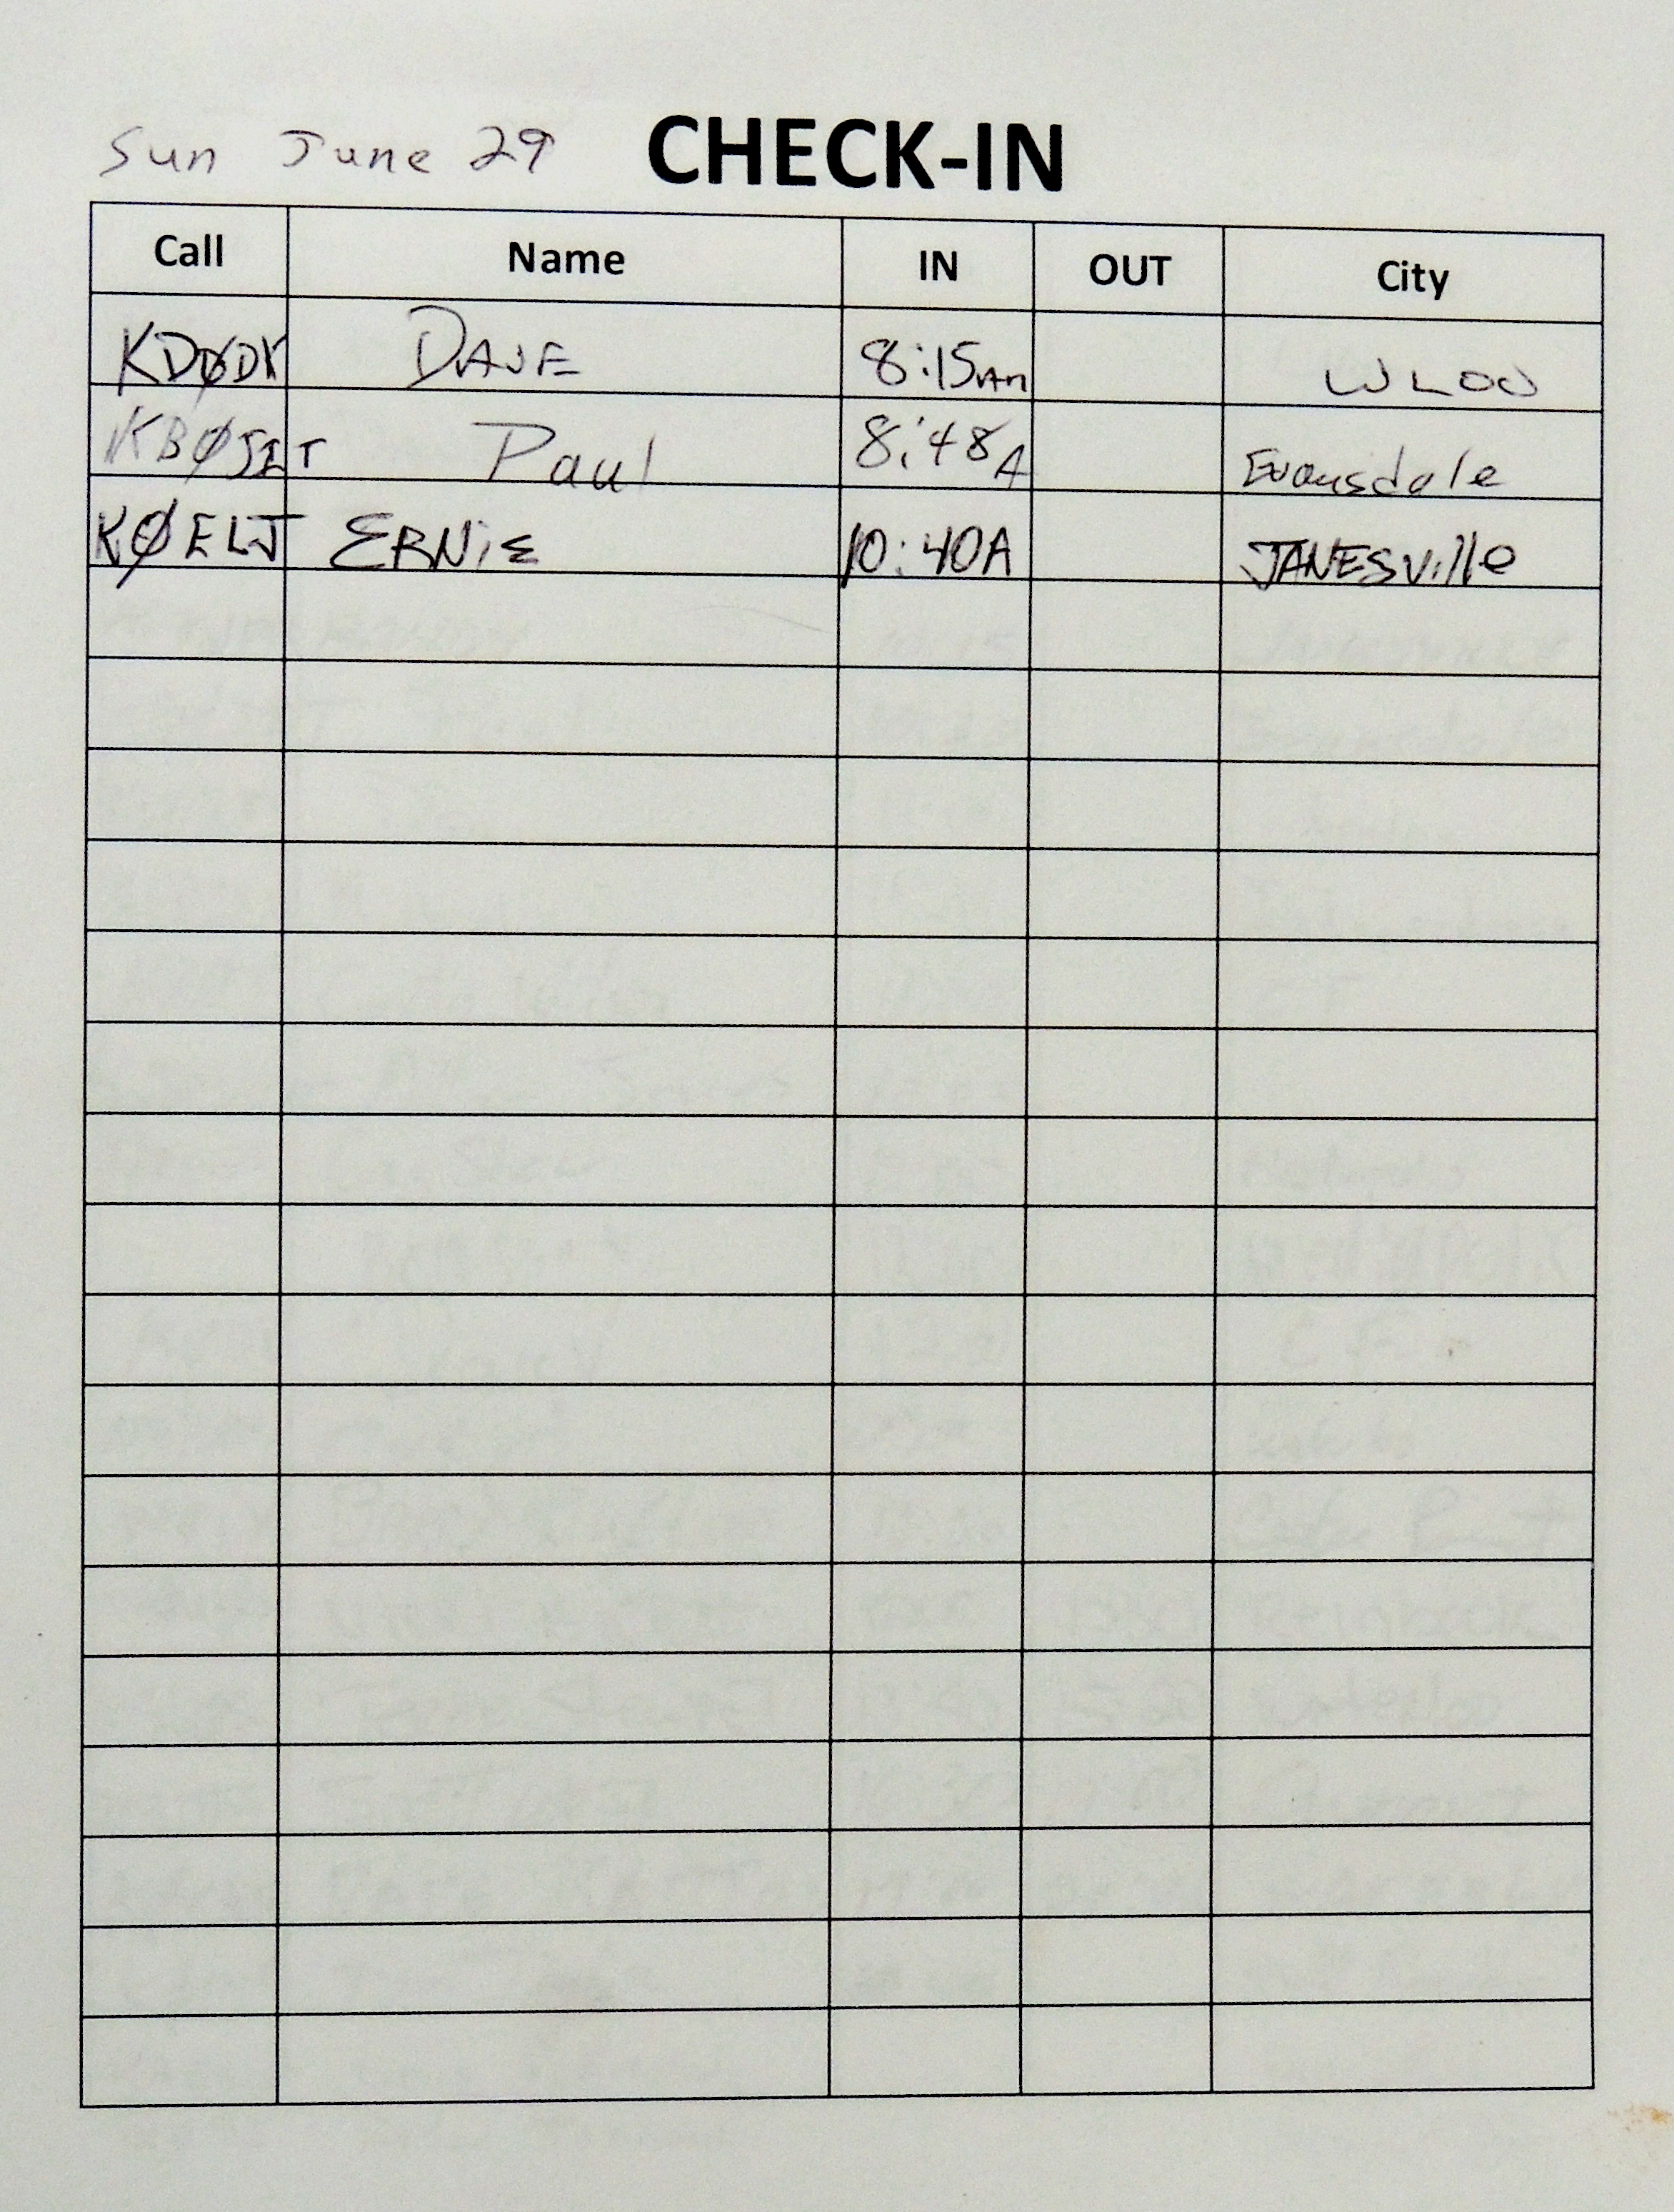 Sun June 29 CHECK-IN
Call Name IN OUT City
KDØDX DAVE 8:15AM WLOO
KBØSIT Paul 8:48A Evansdale
KØELJ ERNiE 10:40A JANESVille